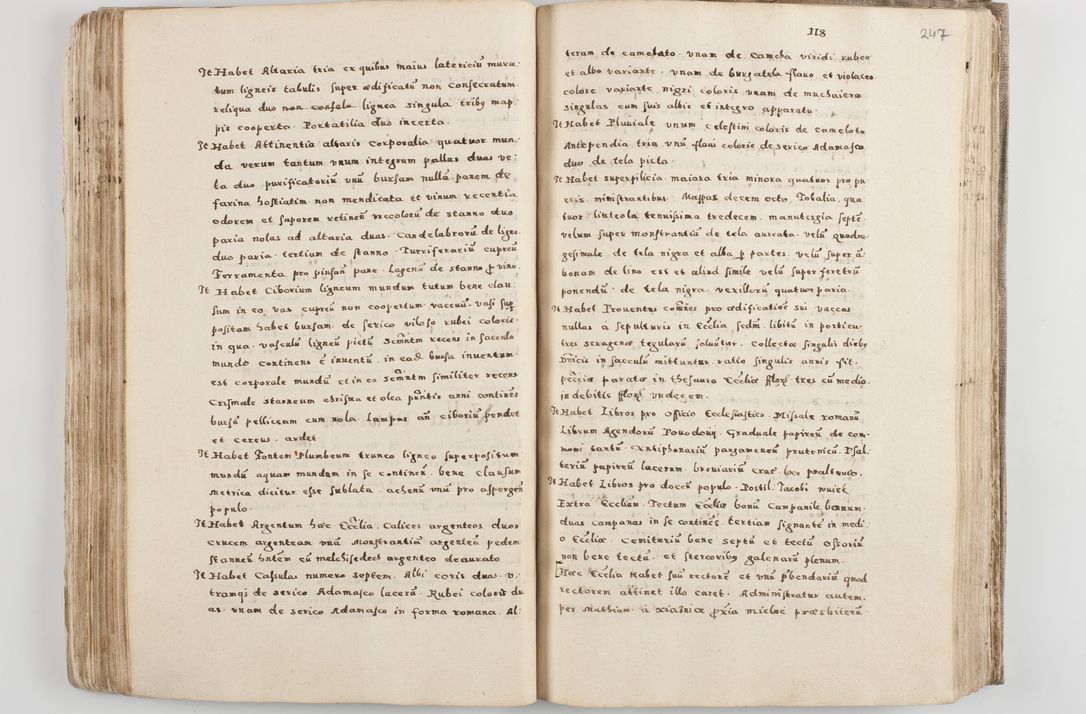 It Habet Altaria tria ex quibus maius latericiũ mura-
tum ligneis tabulis super ædificatũ non consecratum.
reliqua duo non lignea singula tribg map-
pis cooperta. Portatilia duo incerta.
It Habet Attinentia altaris Corporalia quatuor mun-
da verum tantum vnum integrum pallas duas ve-
la duo purificatoriũ vnũ bursam nullã. panem de
farina hostiatim non mendicata et vinum recentia
odorem et saporem retineñ vrceolorũ de stanno duo
paria nolas ad altaria duas. Candelabrorũ de ligno
duo paria. tertium de stanno. Turriferariũ cupreũ
Ferramenta pro pinsañ pane. Lagenã de stanno p vino.
It Habet Ciborium ligneum mundum tutum bene clau-
sum in eo vas cupreũ non coopertum. vacuũ. vasi sup
positam habet bursam de serico viloso rubei coloris.
in qua vasculũ ligneũ pictũ Scmñtm recens in
mundo continens ẽ inuentũ. in ead bursa inuentum
est corporale mundũ et in eo semñtm similiter recens
Crismale stanneum chrisma et olea pñtis anni continẽs
bursã pelliceam cum nola. Lampas añ ciboriũ pendet
et cereus ardet.
It Habet Fontem Plumbeum trunco ligneo superpositum
mundũ aquam mundam in se contineñ. bene clausum
metrica dicitur esse sublata. achenũ vnũ pro aspergeñ
populo.
It Habet Argentum hæc Ecclia. Calices argenteos duos
crucem argenteam vnã Monstrantiã argenteã pedem
stanneũ hñtem cũ melchisedech argenteo deaurato
It Habet Casulas numero septem. Albi coris duas. v-
tramq de serico Adamasco lacerã. Rubei coloris du
as. vnam de serico Adamasco in forma romana. Al-
118
247
teram de camelato. vnam de Camcha viridi rubeo
et albo variante. vnam de bursatela flauo et violaceo
colore variante nigri coloris vnam de muchaiero
singulas cum suis albis et integro apparatu.
It Habet Pluuiale vnum Celestini coloris de cameloto
Antependia tria vnũ flaui coloris de serico Adamasco
duo de tela picta.
It Habet superpilicia maiora tria minora quatuor pro pu-
eris ministrantibus. Mappas decem octo. Tobalia, qua-
tuor linteola tenuisima tredecem. manutergia septẽ
velum super monstrantiã de tela aurata. velũ quadra-
gesimale de tela nigra et alba p partes. velũ super ã-
bonam de lino est et aliud simile velũ super feretrũ
ponendũ de tela nigra. vexillorũ quatuor paria.
It Habet Prouentus coiñes pro ædificatiõe sui vaccas
nullas à sepulturis in Ecclia sedm libitũ in porticu
tres sexagenæ tegularũ soluũtur. Collectæ singulis dieb
Dñicis in sacculũ mittuntur. ratio singulis annis fit.
pecciæ paratæ in thesauro Eccliæ fflor tres cũ medio.
in debitis fflor vndecem.
It Habet Libros pro Officio Ecclesiastico. Missale romanũ
Librum Agendorũ Graduale papireũ de com-
muni tantũ. Antiphonariũ pargameneũ prutenicũ. Psal-
teriũ papireũ lacerum. breuiariũ crac loco psalterio.
It Habet Libros pro doceñ populo. Postil. Jacobi wuiek
Extra Eccliam. Tectum Eccliæ bonũ Campanile bonum
duas campanas in se continẽs. tertiam signantẽ in medi-
o Eccliæ. Cemiteriũ bene septũ et tectũ Osoriũ
non bene tectũ. et stercoribg galenarũ plenum.
Hæc Ecclia Habet suũ rectorẽ et vnũ pbendariũ quod
rectorem attinet illo caret. Administratur autem
per Mathiam à pria mielec præsbiterũ